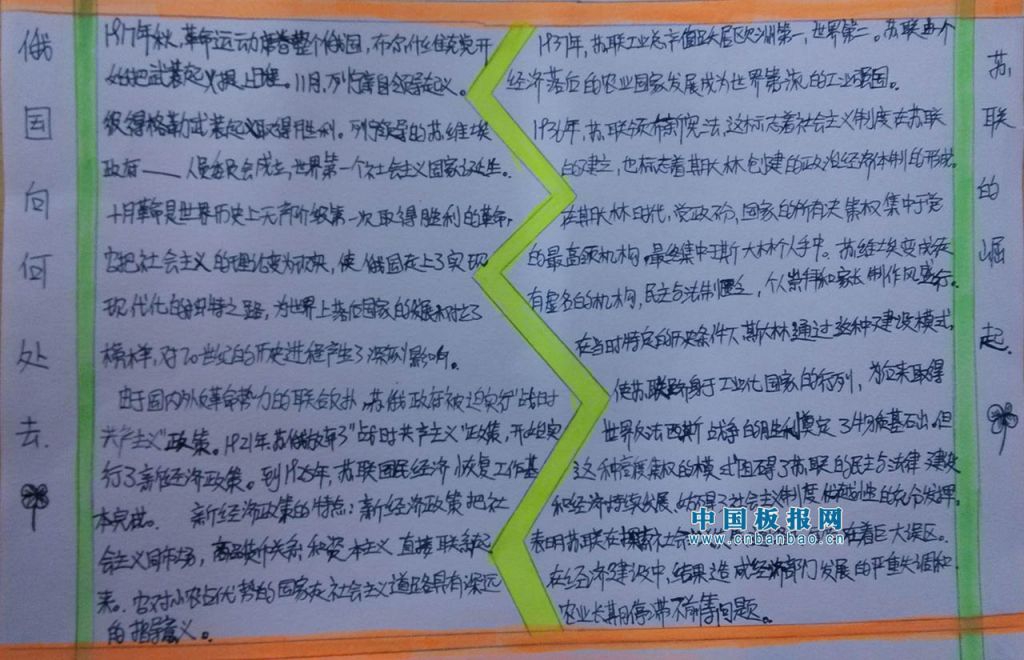 俄国向何处去.
1917年秋,革命运动席卷整个俄国,布尔什维克党开
始把武装起义提上日程。11月,列宁亲自领导起义。
彼得格勒武装起义取得胜利。列宁领导的苏维埃
政府——人民委员会成立,世界第一个社会主义国家诞生。
十月革命是世界历史上无产阶级第一次取得胜利的革命,
它把社会主义的理论变为现实,使俄国走上了实现
现代化的独特之路,为世界上落后国家的发展树立了
榜样,对20世纪的历史进程产生了深刻影响。
由于国内外反革命势力的联合反扑,苏俄政府被迫实行"战时
共产主义"政策。1921年,苏俄放弃了"战时共产主义"政策,开始实
行了新经济政策。到1925年,苏联国民经济恢复工作基
本完成。 新经济政策的特点:新经济政策把社
会主义同市场,商品货币关系和资本主义直接联系起
来.它对小农占优势的国家走社会主义道路具有深远
的指导意义。
1937年,苏联工业总产值跃居欧洲第一,世界第二。苏联由个
经济落后的农业国家发展成为世界第流的工业强国。
1936年,苏联颁布新宪法,这标志着社会主义制度在苏联
的建立,也标志着斯大林创建的政治经济体制的形成。
在斯大林时代,党政不分,国家的所有决集权集中于党
的最高领机构,最终集中于斯大林个人手中。苏维埃变成徒
有虚名的机构,民主与法制,个人崇拜和家长制作风盛行。
在当时特定的历史条件下斯大林通过这种建设模式,
使苏联跻身于工业化国家的行列,为后来取得
世界反法西斯战争的胜利奠定了物质基石出.但
这种高度集权的模式阻碍了苏联的民主与法律建设
和经济持续发展,妨碍了社会主义制度优越性的充分发挥,
表明苏联在探索社会存在着巨大误区。
在经济建设中,结果造成经济部门发展的严重失调和
农业长期停滞不前等问题。
苏联的崛起.
中国板报网
www.cnbanbao.cn